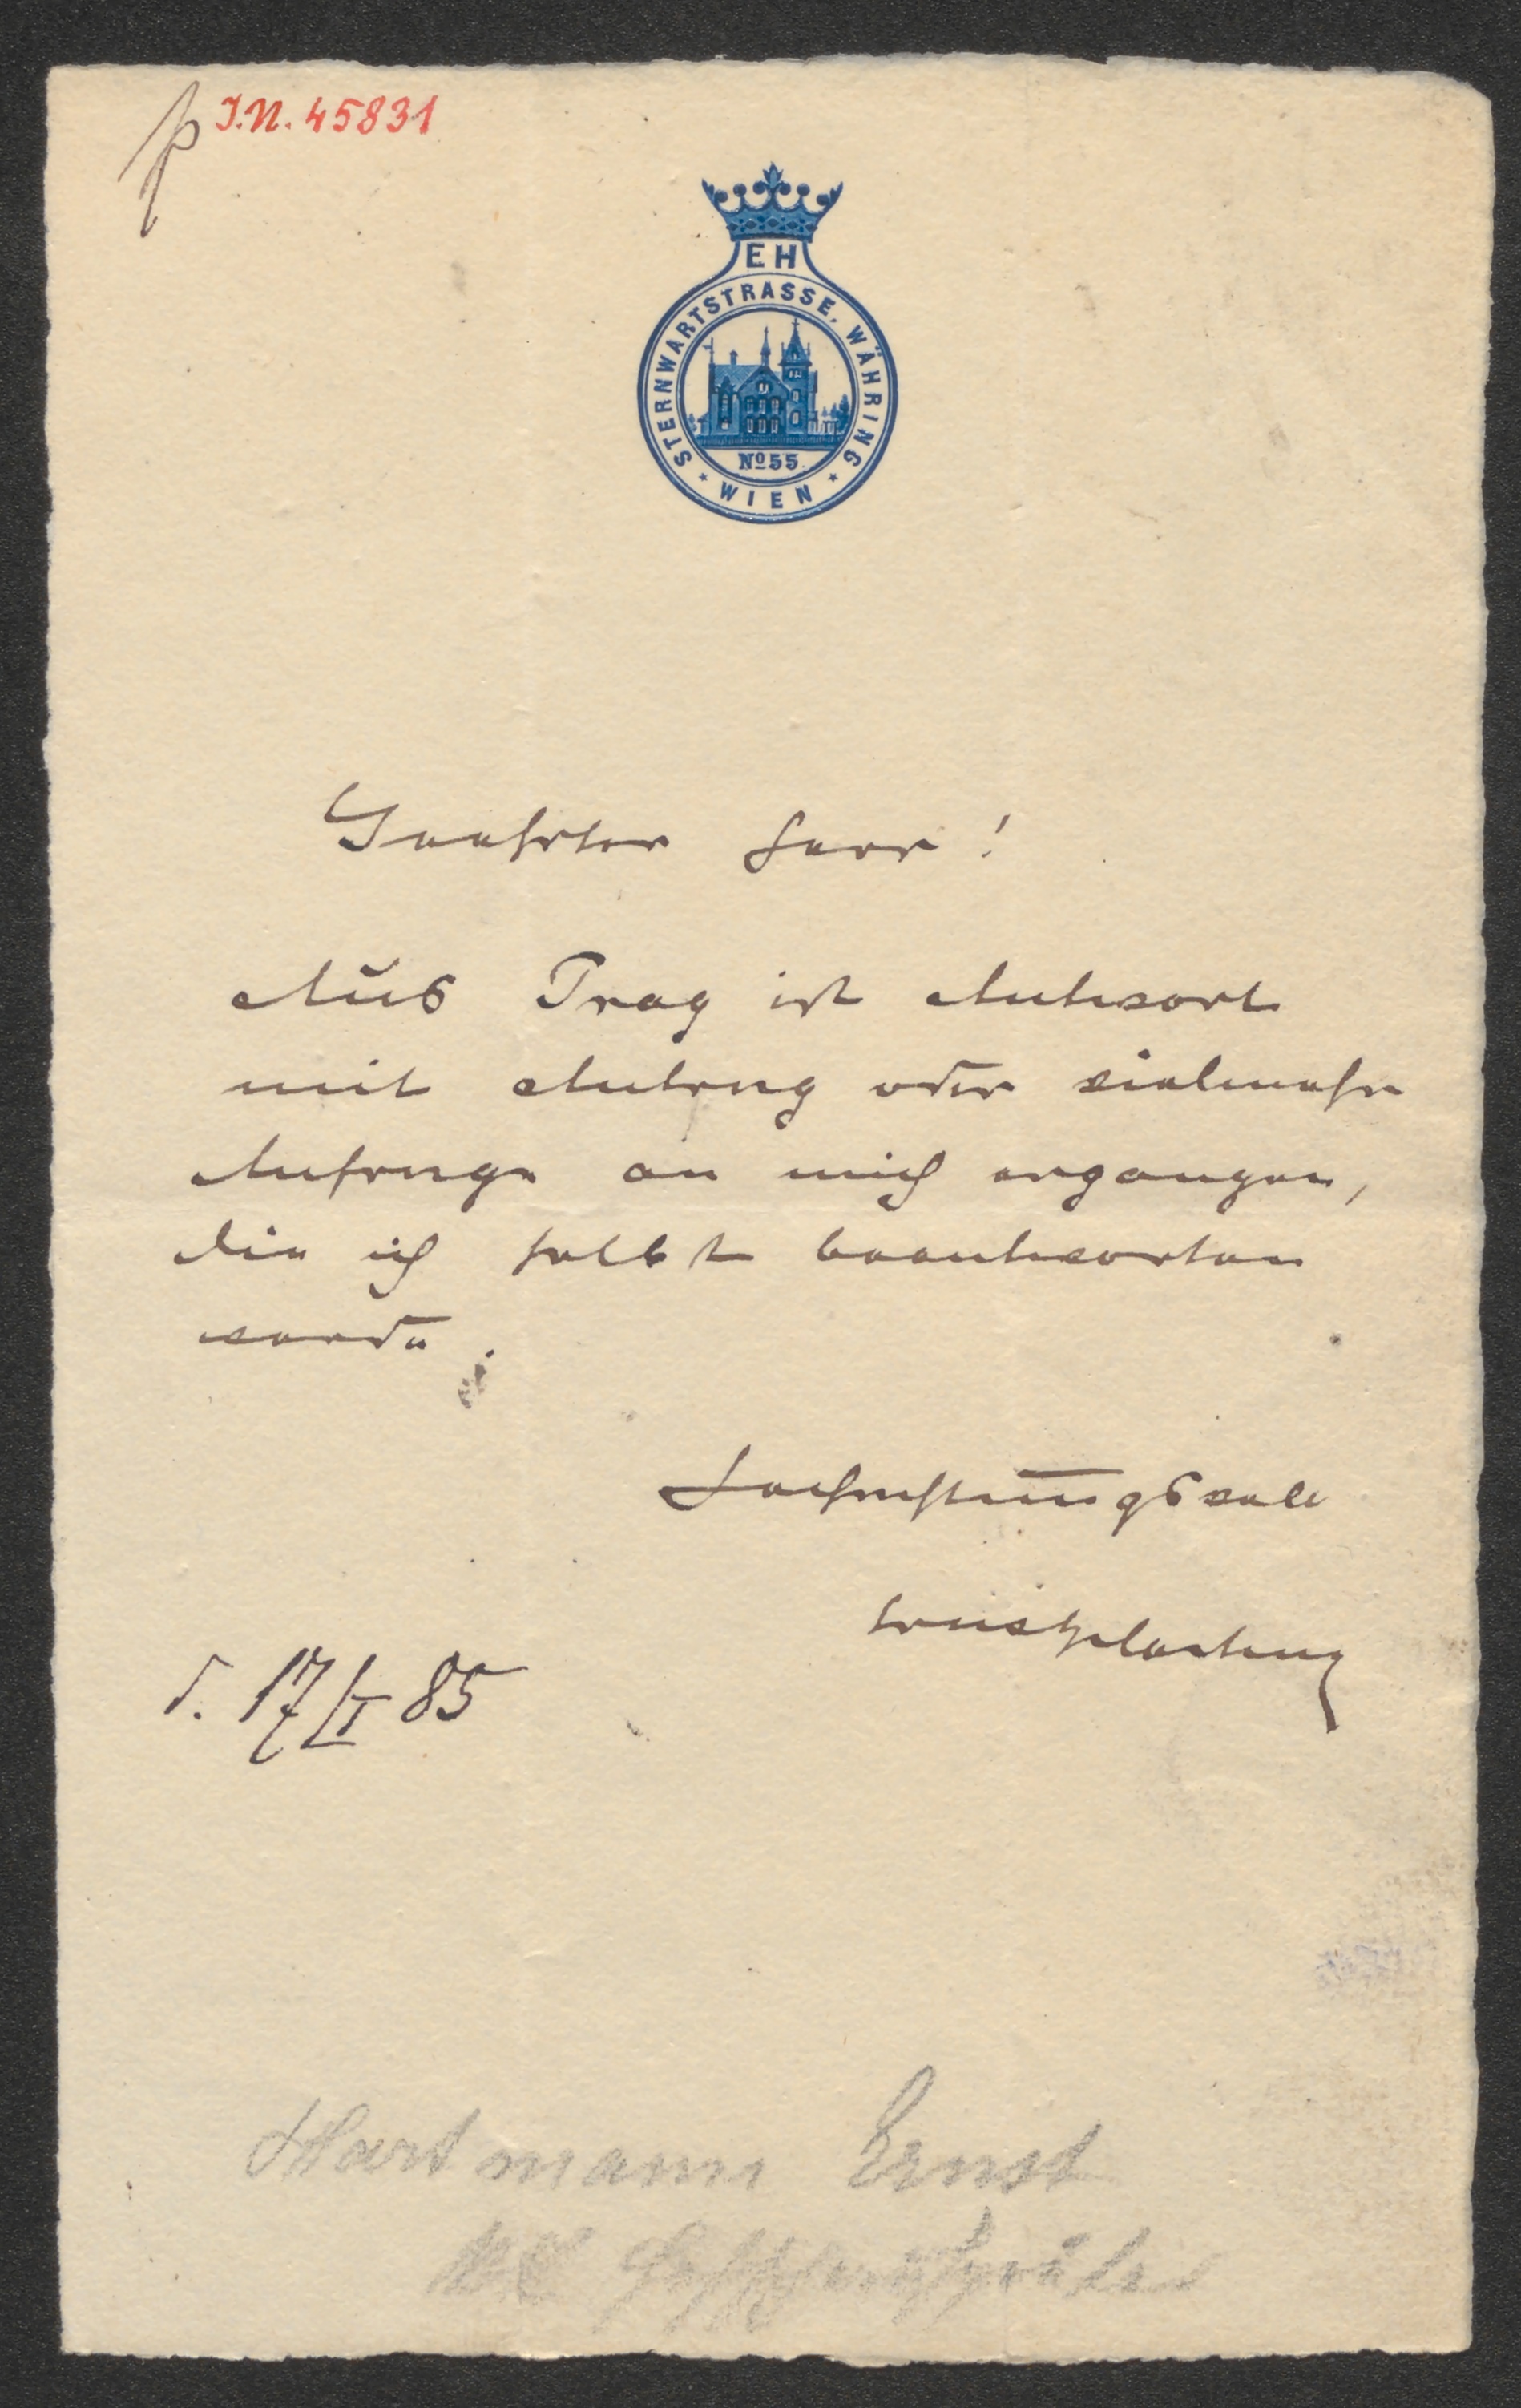 I.N. 45831
EH
STERNWARTSTRASSE, WÄHRING
No 55
* WIEN *
Geehrter Herr!
Aus Prag ist Antwort
mit Antrag oder vielmehr
Anfrage an mich ergangen,
die ich selbst beantworten
werde.
Hochachtungsvoll
Ernst Hartmann
d. 17/I 85
Hartmann Ernst
kk Hofschauspieler